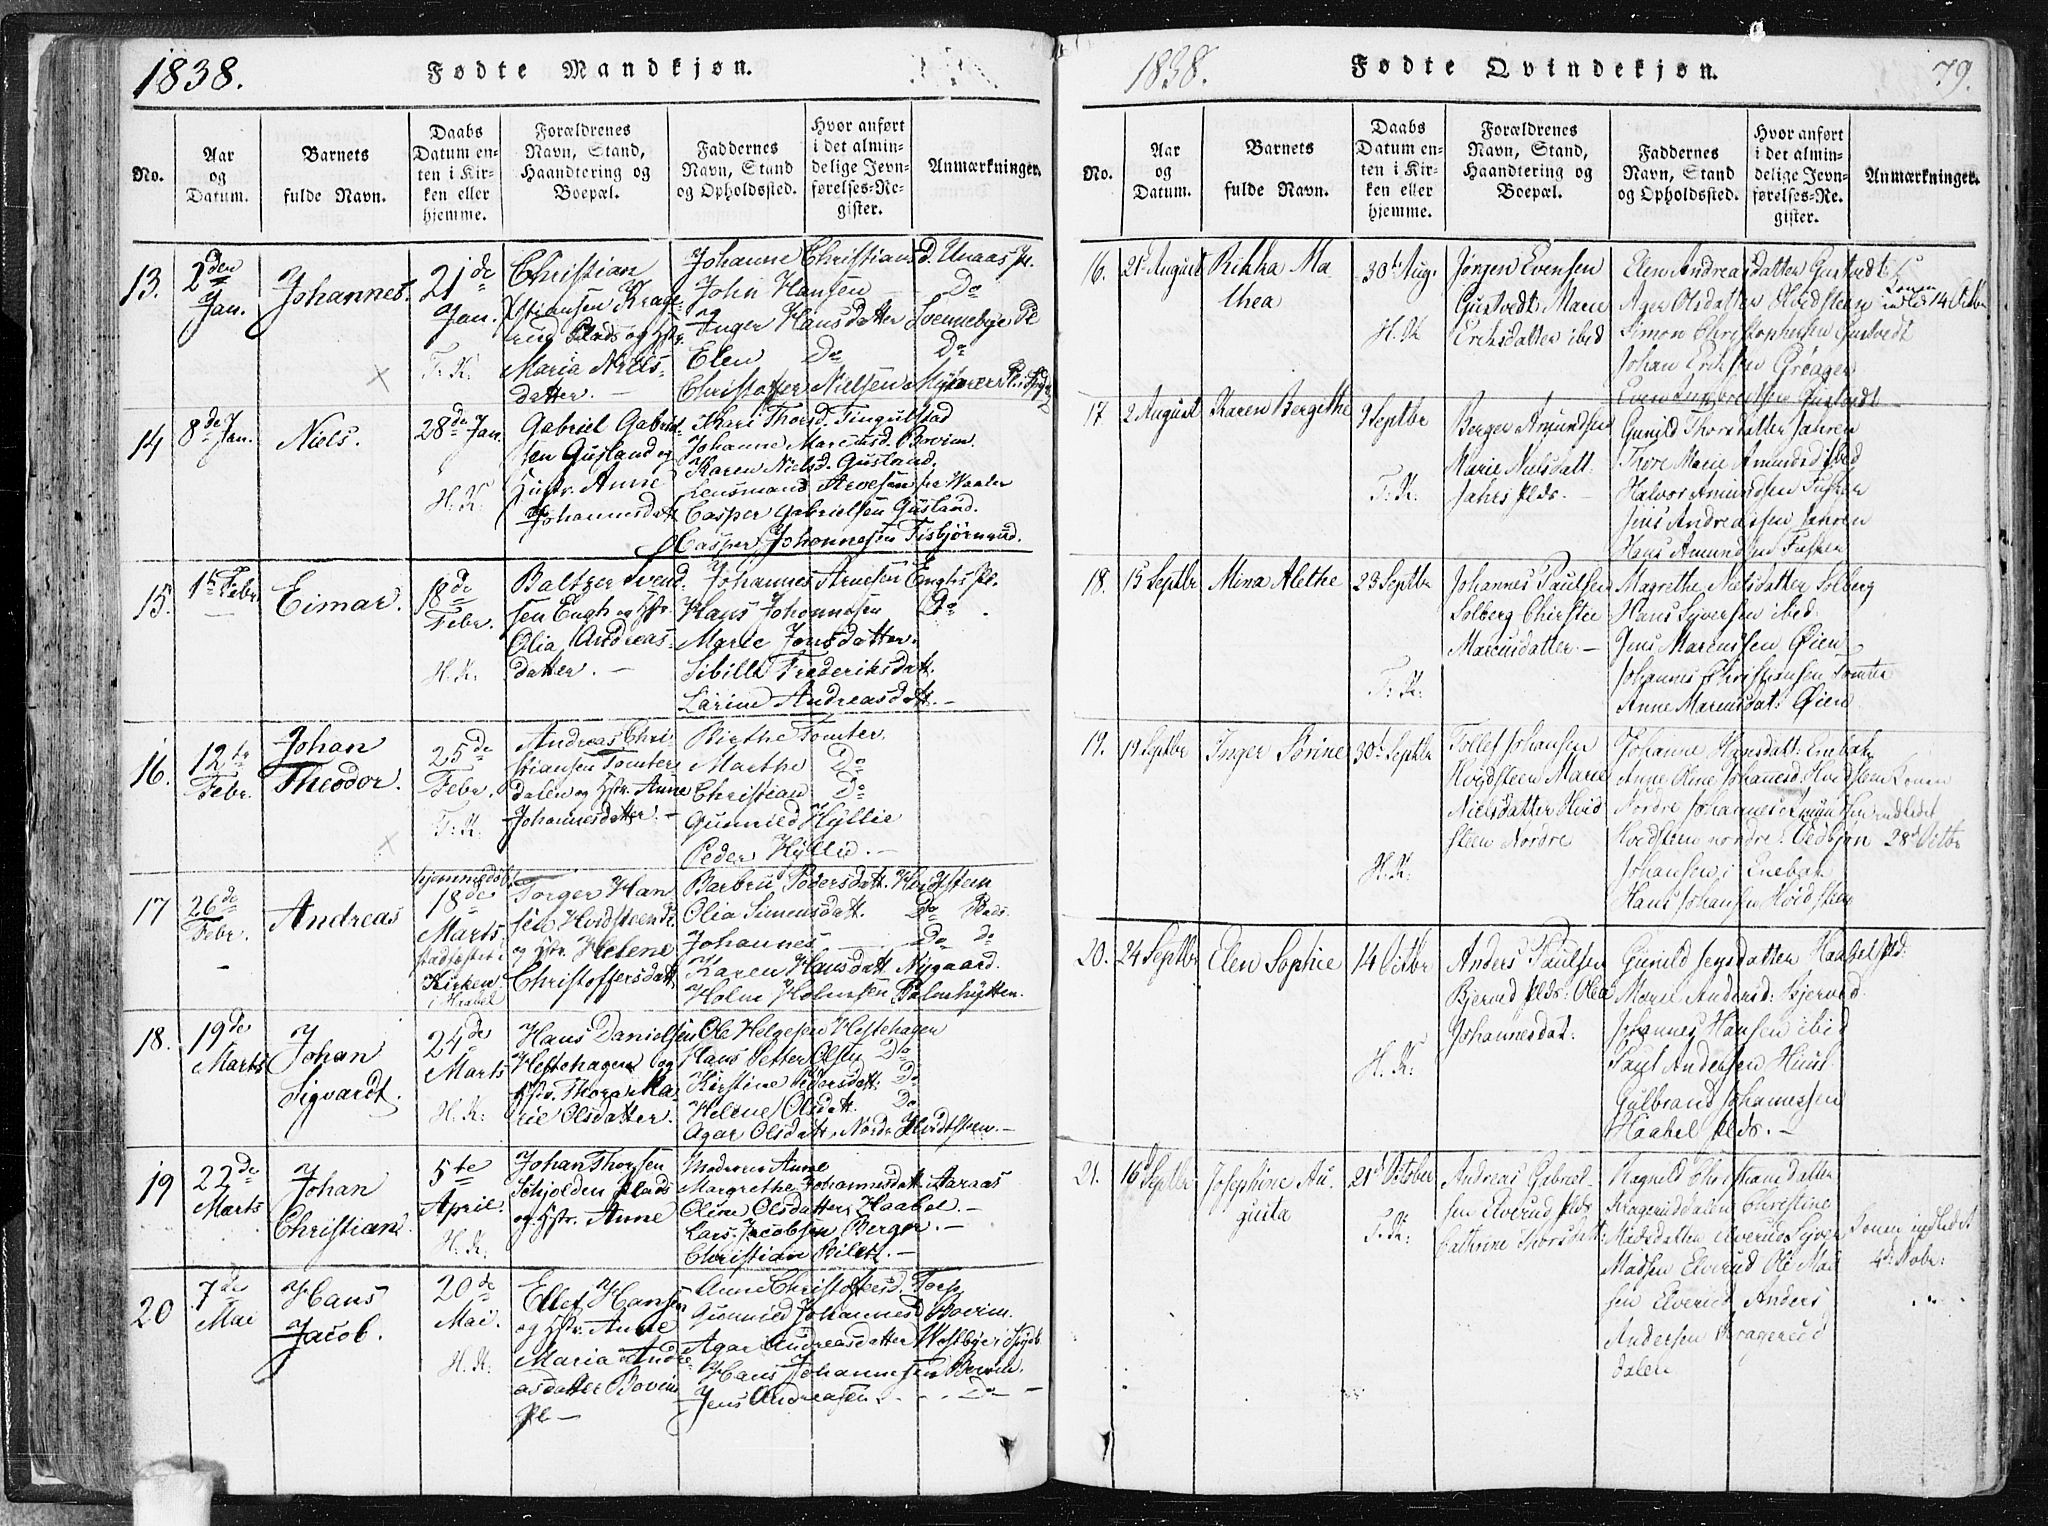 1838.
Fødte Mandkjøn.
No.
Aar og Datum.
Barnets fulde Navn.
Daabs Datum enten i Kirken eller hjemme.
Forældrenes Navn, Stand, Haandtering og Boepæl.
Faddernes Navn, Stand og Opholdssted.
Hvor anført i det almindelige Jevnførelses-Register.
Anmærkninger.
13.
2den Jan.
Johannes.
21de Jan.
F: K:
Christian
Maria Niels-
datter. –
Johanne Christiansd.
John Hansen Do
Inger Hansdatter
Elen Do Do
Christoffer Nielsen
14
8de Jan.
Niels.
28de Jan.
H. K:
Gabriel Gabriel
sen Gusland og
Hustr. Anne
Johannesdatt
Kari Thorsd.
Johanne Marcusd. Bovim.
Karen Nielsd. Gusland.
Lensmand Arvesen
Casper Gabrielsen Gusland.
Casper Johannesen
15.
1te Febr.
Eimar.
18de Febr.
H. K:
Baltzer Svend
sen Engh og Hstr.
Olia Andreas-
datter. –
Johannes Arnesen Enghs Pl.
Hans Johannesen Do.
Marie Jonsdatter.
Sibille Frederiksdatt.
Larine Andreasdatt. –
16.
12te Febr.
Johan
Theodor.
25de Febr.
F: K:
Andreas Chri-
stiansen Tomter
dalen og Hstr. Anne
Johannesdatter. –
Birthe Tomter.
Marthe Do
Christian Do
Gunnild Hyllie
Peder Hyllie. –
17
26de Febr.
Andreas
18de Marts
Kirken
Torger Han
sen Hvidsteen
og Hstr. Helene
Christoffersdatt
Barbru Pedersdatt.
Olia Simensdatt. Do
Johannes Do
Karen Hansdatt Nygaard.
Holm Holmsen
18.
19de Marts
Johan
Sigvardt.
24de Marts
H. K:
Hans Danielsen
Heftehagen og
Hstr. Thora Ma-
rie Olsdatter.
Ole Helgesen Heftehagen
Hans Petter Olsen Do
Kirstine Pedersdatt: Do
Helene Olsdatt. Do
Agar Olsdatt. Nordr Hvidsteen. –
19
22de Marts
Johan
Christian.
5te April.
H. K:
Johan Thorsen
Schjolden Plads
og Hstr. Anne
Moderen Anne
Margrethe Johannesdatt: Aaraas
Oline Olsdatter Haabel. –
Lars Jacobsen Berger. –
Christian Bilet. –
20
7de Mai
Hans
Jacob.
20de Mai.
H. K.
Ellef Hansen
og Hstr. Anne
Maria Andre
asdatter Bovim
Pl –
Anne Christoffersd. Torp
Gunnild Johannesd Bovim.
Agar Andreasdatter Vestbye
Hans Johannesen Bovim.
Jens Andreasen Do –
1838.
Fødte Qvindekjøn.
79.
No.
Aar og Datum.
Barnets fulde Navn.
Daabs Datum enten i Kirken eller hjemme.
Forældrenes Navn, Stand, Haandtering og Boepæl.
Faddernes Navn, Stand og Opholdssted.
Hvor anført i det almindelige Jevnførelses-Register.
Anmærkninger.
16.
21 August
Rikka Ma
thea
30te Aug.
H. K
Jørgen Evensen
Gustvedt Maren
Eriksdatter ibid
Elen Andreasdatter Gustvedt
Ager Olsdatter Hvidsteen
Simon Christophersen Gustvedt
Johan Eriksen
Even Gustvedt
Konen
indled 14 Octbr
17
2 August
Karen Bergethe
9 Septbr
F: K:
Berger Amundsen
Marie Nielsdatt.
Jahrs Plds. –
Gunild Thorsdatter Jahren
Thore Marie Amundsd ibid
Halvor Amundsen
Jens Andreassen Jahren
Hans Amundsen
18.
15 Septbr
Mina Alethe
23 Septbr
F: K:
Johannes Paulsen
Solberg Chirstie
Marcusdatter. –
Magrethe Nielsdatter Solberg
Hans Syversen ibid:
Jens Marcussen Øien
Johannes Christiansen Tomter
Anne Marcusdat: Øien
19.
19 Septbr
Inger Sørine
30te Septbr
H. K:
Tollef Johansen
Hvidsteen Maren
Nielsdatter Hvid
steen Nordre
Johanne Hansdatt: Enebak
Anne Oline Johannesd Hvidsteen
Nordre
Hvidsteen nordre:
Johansen i Enebak
Hans Johansen Hvidsteen
Konen
indledet
28de Octbr
20.
24 Septbr
Elen Sophie
14 Octbr
H. K:
Anders Paulsen
Bjerud Plds: Olea
Johannesdat:
Gunild Jensdatter Haabel Pld:
Marie Andersd:
Johannes Hansen ibid
Paul Andersen
Gulbrand Johannessen
Haabel Plds. –
21.
16 Septbr
Josephine Au-
gusta
21 October
F. K:
Andreas Gabriel-
sen Elverud Plds
Cathrine Thorsdatt:
Ragnild Christiansdatter
Krageruddalen Christine
Madsdatter Elverud Syver
Madsen Elverud Ole Mad
sen Elverud Anders
Andersen Kragerud
dalen
Konen
4de Nobr: